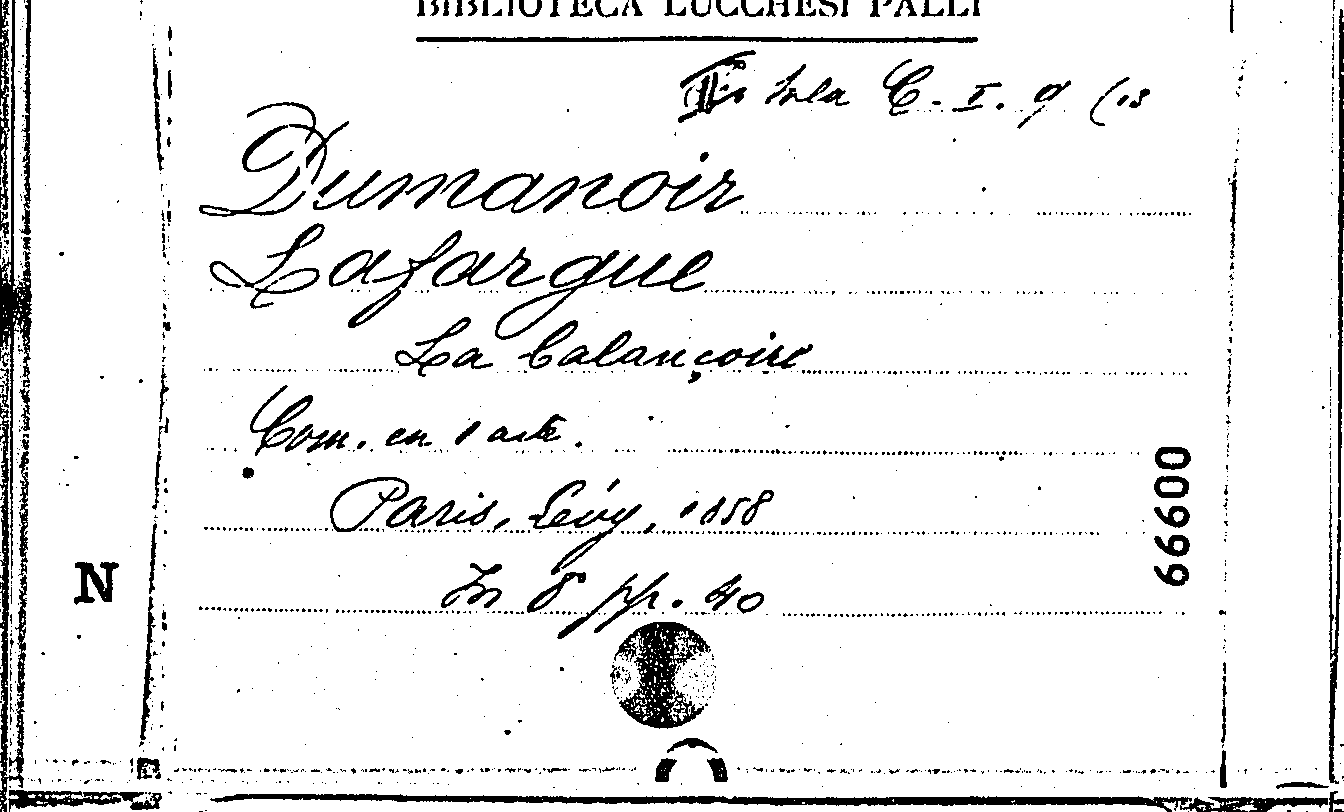 BIBLIOTECA LUCCHESI PALLI
Sala C. I. 9 (13
Dumanoir
Lafargue
La balançoire
Com. en 1 acte.
Paris, Lévy, 1858
In 8 pp. 40
N
66600